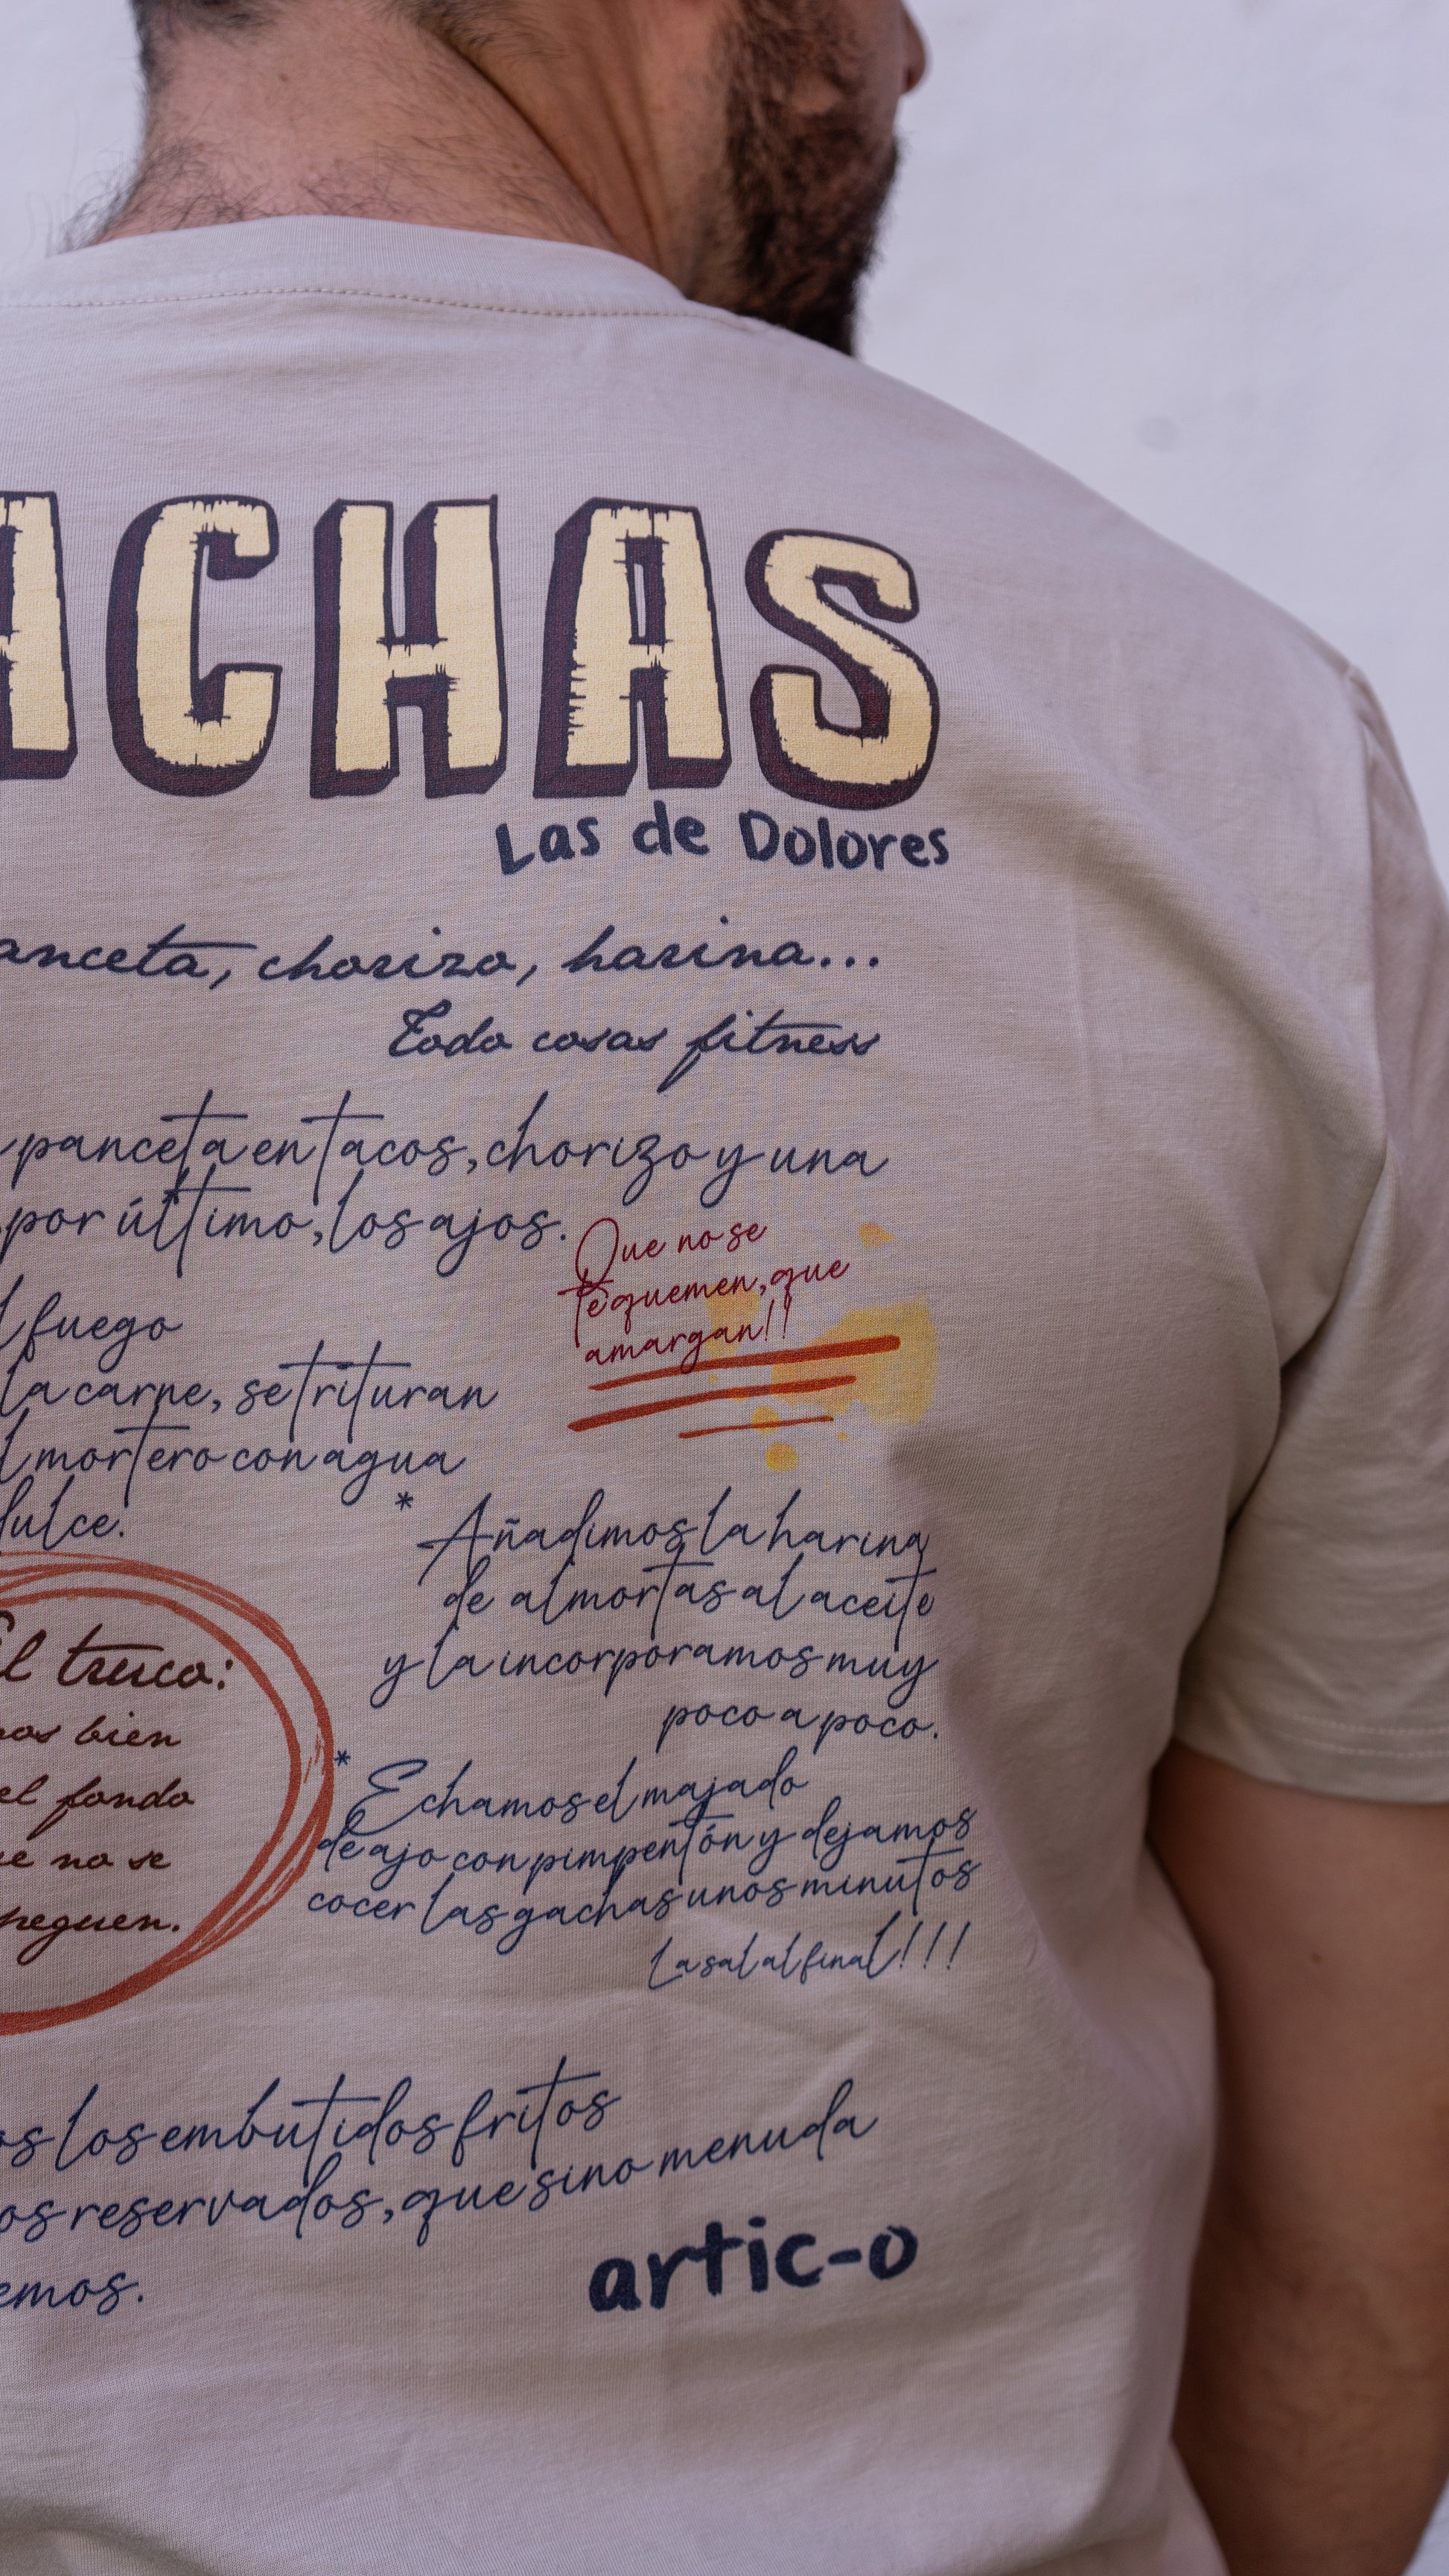 ACHAS
Las de Dolores
anceta, chorizo, harina...
Todo cosas fitness
panceta en tacos, chorizo y una
por último, los ajos.
Que no se
te quemen, que
amargan!!
l fuego
la carne, se trituran
l mortero con agua
dulce.
* Añadimos la harina
de almortas al aceite
y la incorporamos muy
poco a poco.
El truco:
os bien
el fondo
e no se
peguen.
* Echamos el majado
de ajo con pimpentón y dejamos
cocer las gachas unos minutos
La sal al final!!!
os los embutidos fritos
os reservados, que sino menuda
emos.
artic-o